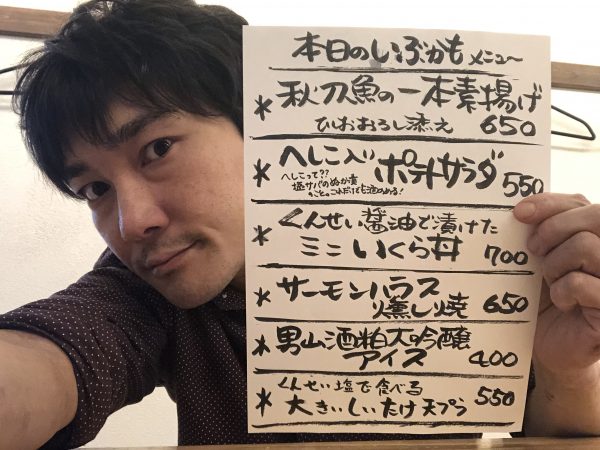 本日のいぶかも メニュー
* 秋刀魚の一本素揚げ
ひしおおろし添え 650
* へしこ入り ポテトサラダ 550
へしこって??
塩サバのぬか漬
のこと。これだけでも酒のめる!
* くんせい醤油で漬けた
ミニいくら丼 700
* サーモンハラス
燻し焼 650
* 男山酒粕大吟醸
アイス 400
* くんせい塩で食べる
大きいしいたけ天プラ 550